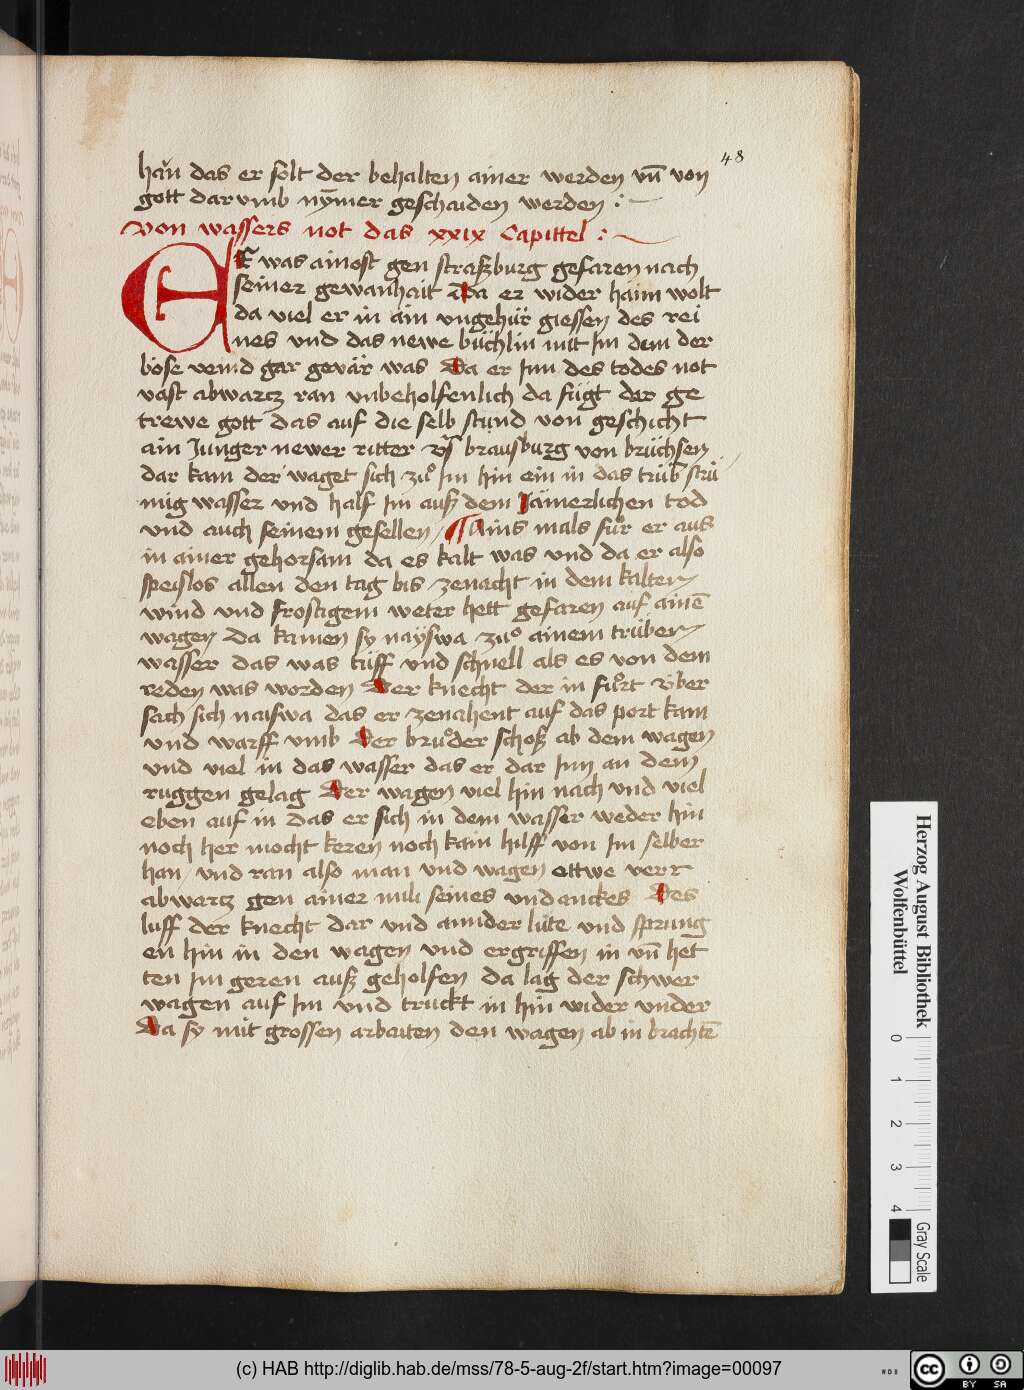 48
han das er solt der behalten ainer werden vn̄ von
gott dar vmb nȳmer geschaiden werden :~
Von wassers not das xxix Capittel :~
ER was ainost gen straszburg gefaren nach
seiner gewanhait Da er wider haim wolt
da viel er in ain vngehür giessen des rei
nes vnd das newe büchlin mit Im dem der
böse veind gar gevär was Da er Inn des todes not
vast abwarcz ran vnbeholfenlich da fügt der ge
trewe gott das auf die selb stund von geschicht
ain Junger newer ritter vſ brausburg von brüchsen
dar kam der waget sich zuͦ Im hin ein in das trüb strü
mig wasser vnd half Im ausz dem Jämerlichen tod
vnd auch seinem gesellen / ¶ Ains mals fuͦr er aus
in ainer gehorsam da es kalt was vnd da er also
speislos allen den tag bis zenacht in dem kalten
wind vnd frostigem weter hett gefaren auf ainē
wagen da kamen sy nayswa zuͦ ainem trüben
wasser das was tüff vnd schnell als es von dem
reden was worden Der knecht der in fuͦrt v̈ber
sach sich naiswa das er zenahent auf das port kam
vnd warff vmb Der bruͦder schosz ab dem wagen
vnd viel in das wasser das er dar Inn an dem
ruggen gelag Der wagen viel hin nach vnd viel
eben auf in das er sich in dem wasser weder hin
noch her mocht keren noch kain hilff von Im selber
han / vnd ran also man vnd wagen ettwe verr
abwarcz gen ainer mili seines vndanckes Des
luff der knecht dar vnd annder lüte vnd sprung
en hin in den wagen vnd ergriffen in vn̄ het
ten Im geren ausz geholfen da lag der schwer
wagen auf Im vnd truckt in hin wider vnder
Da sy mit grossen arbaiten den wagen ab in brachtē
Herzog August Bibliothek
Wolfenbüttel
0 1 2 3 4
Gray Scale
(c) HAB http://diglib.hab.de/mss/78-5-aug-2f/start.htm?image=00097
cc BY SA